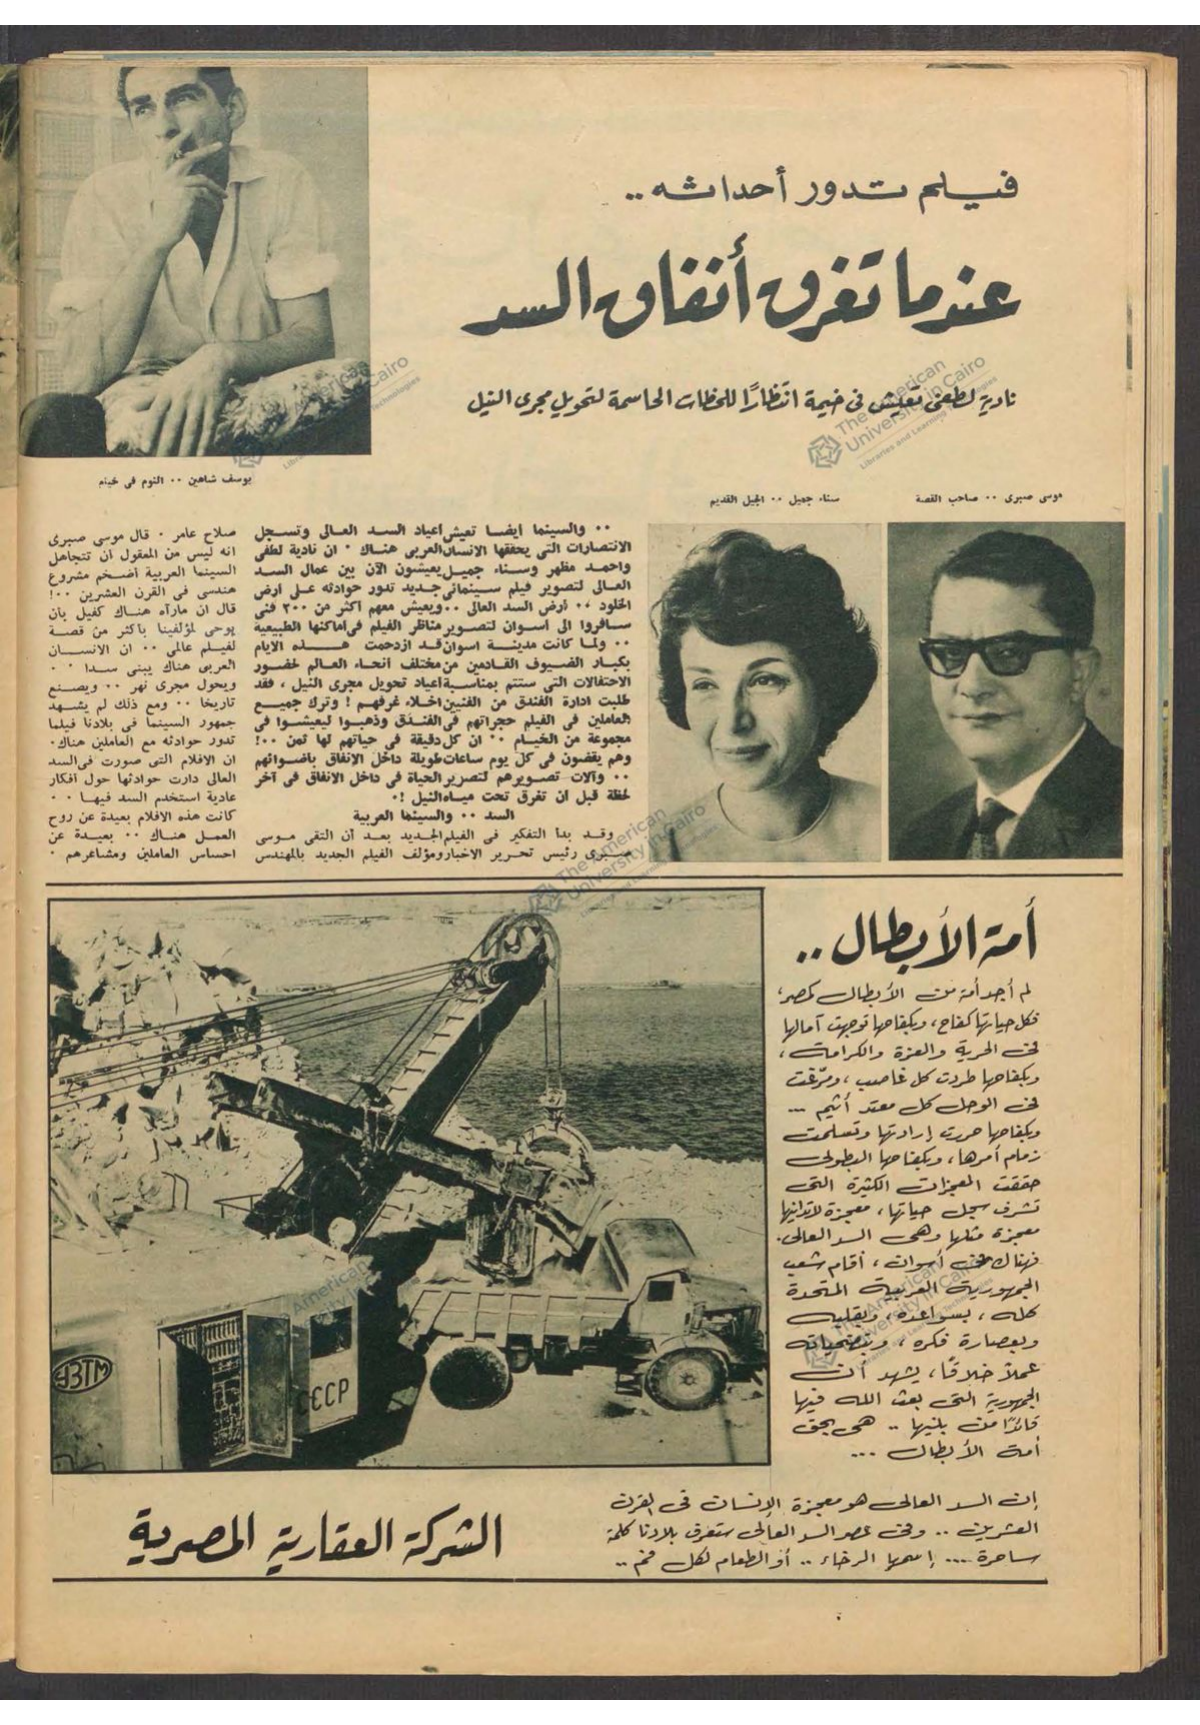 فيلم تدور أحداثه ..
عندما تغرق أنفاق السد
نادية لطفى تعيش فى خيمة انتظارًا للحظات الحاسمة لتحويل مجرى النيل
يوسف شاهين ٠٠ النوم فى خيام
موسى صبرى ٠٠ صاحب القصة
سناء جميل ٠٠ الجيل القديم
٠٠ والسينما ايضا تعيش اعياد السد العالى وتسجل
الانتصارات التى يحققها الانسان العربى هناك ٠ ان نادية لطفى
واحمد مظهر وسناء جميل يعيشون الآن بين عمال السد
العالى لتصوير فيلم سينمائى جديد تدور حوادثه على ارض
الخلود ٠٠ أرض السد العالى ٠٠ ويعيش معهم اكثر من ٢٠٠ فنى
سافروا الى اسوان لتصوير مناظر الفيلم فى اماكنها الطبيعية
٠٠ ولما كانت مدينة اسوان قد ازدحمت هذه الايام
بكبار الضيوف القادمين من مختلف انحاء العالم لحضور
الاحتفالات التى ستتم بمناسبة اعياد تحويل مجرى النيل ، فقد
طلبت ادارة الفندق من الفنيين اخلاء غرفهم ! وترك جميع
العاملين فى الفيلم حجراتهم فى الفندق وذهبوا ليعيشوا فى
مجموعة من الخيام ٠٠ ان كل دقيقة فى حياتهم لها ثمن ٠٠!
وهم يقضون فى كل يوم ساعات طويلة داخل الانفاق باضوائهم
٠٠ وآلات تصويرهم لتصوير الحياة فى داخل الانفاق فى آخر
لحظة قبل ان تغرق تحت مياه النيل !٠
السد ٠٠ والسينما العربية
وقد بدأ التفكير فى الفيلم الجديد بعد أن التقى موسى
صبرى رئيس تحرير الاخبار ومؤلف الفيلم الجديد بالمهندس
صلاح عامر ٠ قال موسى صبرى
انه ليس من المعقول ان تتجاهل
السينما العربية أضخم مشروع
هندسى فى القرن العشرين ٠٠!
قال ان مارآه هناك كفيل بان
يوحى لمؤلفينا باكثر من قصة
لفيلم عالمى ٠٠ ان الانسان
العربى هناك يبنى سدا ٠٠
ويحول مجرى نهر ٠٠ ويصنع
تاريخا ٠٠ ومع ذلك لم يشهد
جمهور السينما فى بلادنا فيلما
تدور حوادثه مع العاملين هناك٠
ان الافلام التى صورت فى السد
العالى دارت حوادثها حول افكار
عادية استخدم السد فيها ٠٠
كانت هذه الافلام بعيدة عن روح
العمل هناك ٠٠ بعيدة عن
احساس العاملين ومشاعرهم ٠
أمة الأبطال ..
لم أجد أمة من الأبطال كمصر،
فكل حياتها كفاح، وبكفاحها توجهت آمالها
فى الحرية والعزة والكرامة،
وبكفاحها طردت كل غاصب، ومرّغت
فى الوحل كل معتد أثيم ...
وبكفاحها حررت إرادتها وتسلمت
زمام أمرها، وبكفاحها البطولى
حققت المعجزات الكثيرة التى
تشرف سجل حياتها، معجزة لاتدانيها
معجزة مثلها وهى السد العالى.
فهناك فى أسوان، أقام شعب
الجمهورية العربية المتحدة
كله، بسواعده، وبقلبه
وبعصارة فكره، وبتضحياته
عملاً خلاقًا، يشهد أن
الجمهورية التى بعث الله فيها
قائدًا من بنيها .. هى بحق
أمة الأبطال ...
УЗТМ
СССР
إن السد العالى هو معجزة الإنسان فى القرن
العشرين .. وفى عصر السد العالى ستعرف بلادنا كلمة
ساحرة .... إسمها الرخاء .. أو الطعام لكل فم ..
الشركة العقارية المصرية
The American
University in Cairo
Libraries and Learning Technologies